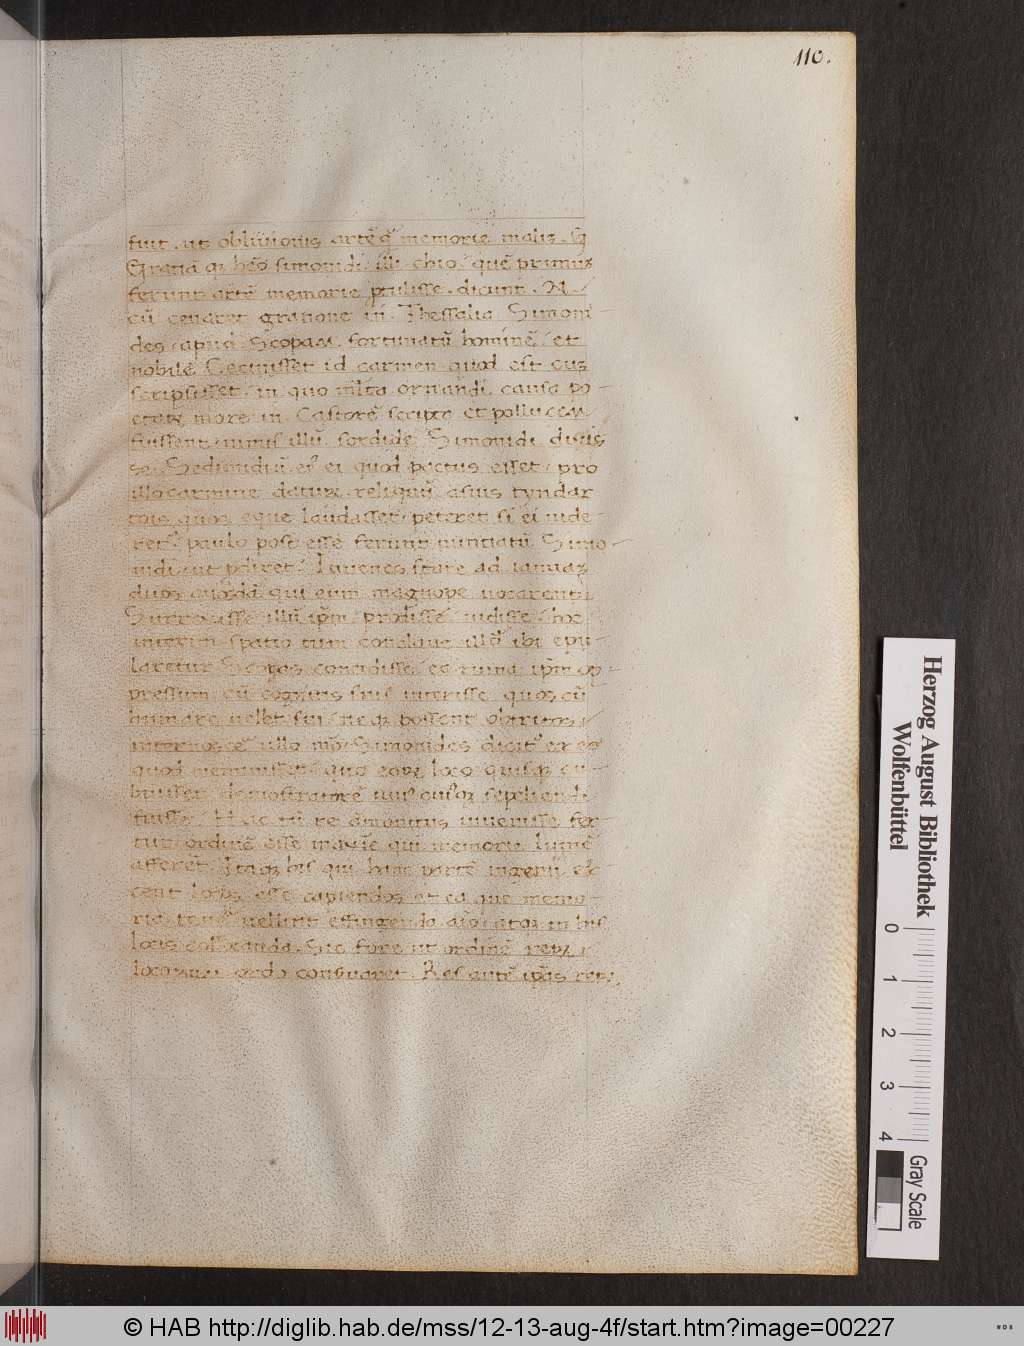 110.
fuit . ut oblivionis artē q̄ memorie maliz. G
Gratiā q; heō simonidi illi chio quē primuz
ferunt artē memorie ptulisse . dicunt . N
cū cenaret gratione in Thessalia Simoni
des apud Scopam fortunatū hominē et
nobilē Cecinisset id carmen quod est euz
scripsisset in quo mlta ornandi causa po
etarꝝ more in Castorē scripta et pollucem
fuissent nimis illū sordide Simonidi dixis
se. Se dimidiū ei quod pactus esset pro
illo carmine daturꝝ reliquū a suis tyndar
tois quos eque laudasset peteret si ei uide
ret paulo post esse ferunt nuntiatū Simo
nidi ut pdiret Iuvenes stare ad ianuaz
duos quosdā qui eum magnope uocarent
Surrexisse illū ip̄m prodisse uidisse
interim spatio tum conclaue illd̄ ibi epu
laretur Scopas concidisse ea ruina ip̄m op
pressum cū cognatis suis interisse quos cū
humare uellēt sui neq; possent obtritos
internoscē ullo mō Simonides dicit ex eo
quod meminisset quo eoꝝ loco quisq; cu
buisset demostratorē uni cuiq; sepeliendi
fuisse Hac tū re āmonitus inuenisse fer
tur ordinē esse maxīe qui memorie lumē
afferet Itaq; his qui hanc partē ingenii ex
cent locos esse capiendos et ea que memo
ria tenē uellent effingenda aīo atq; in his
locis collocanda. Sic fore ut ordinē reꝝ
locoꝝ ordo conseruaret. Res autē ip̄as reꝝ
Herzog August Bibliothek
Wolfenbüttel
0 1 2 3 4
Gray Scale
© HAB http://diglib.hab.de/mss/12-13-aug-4f/start.htm?image=00227